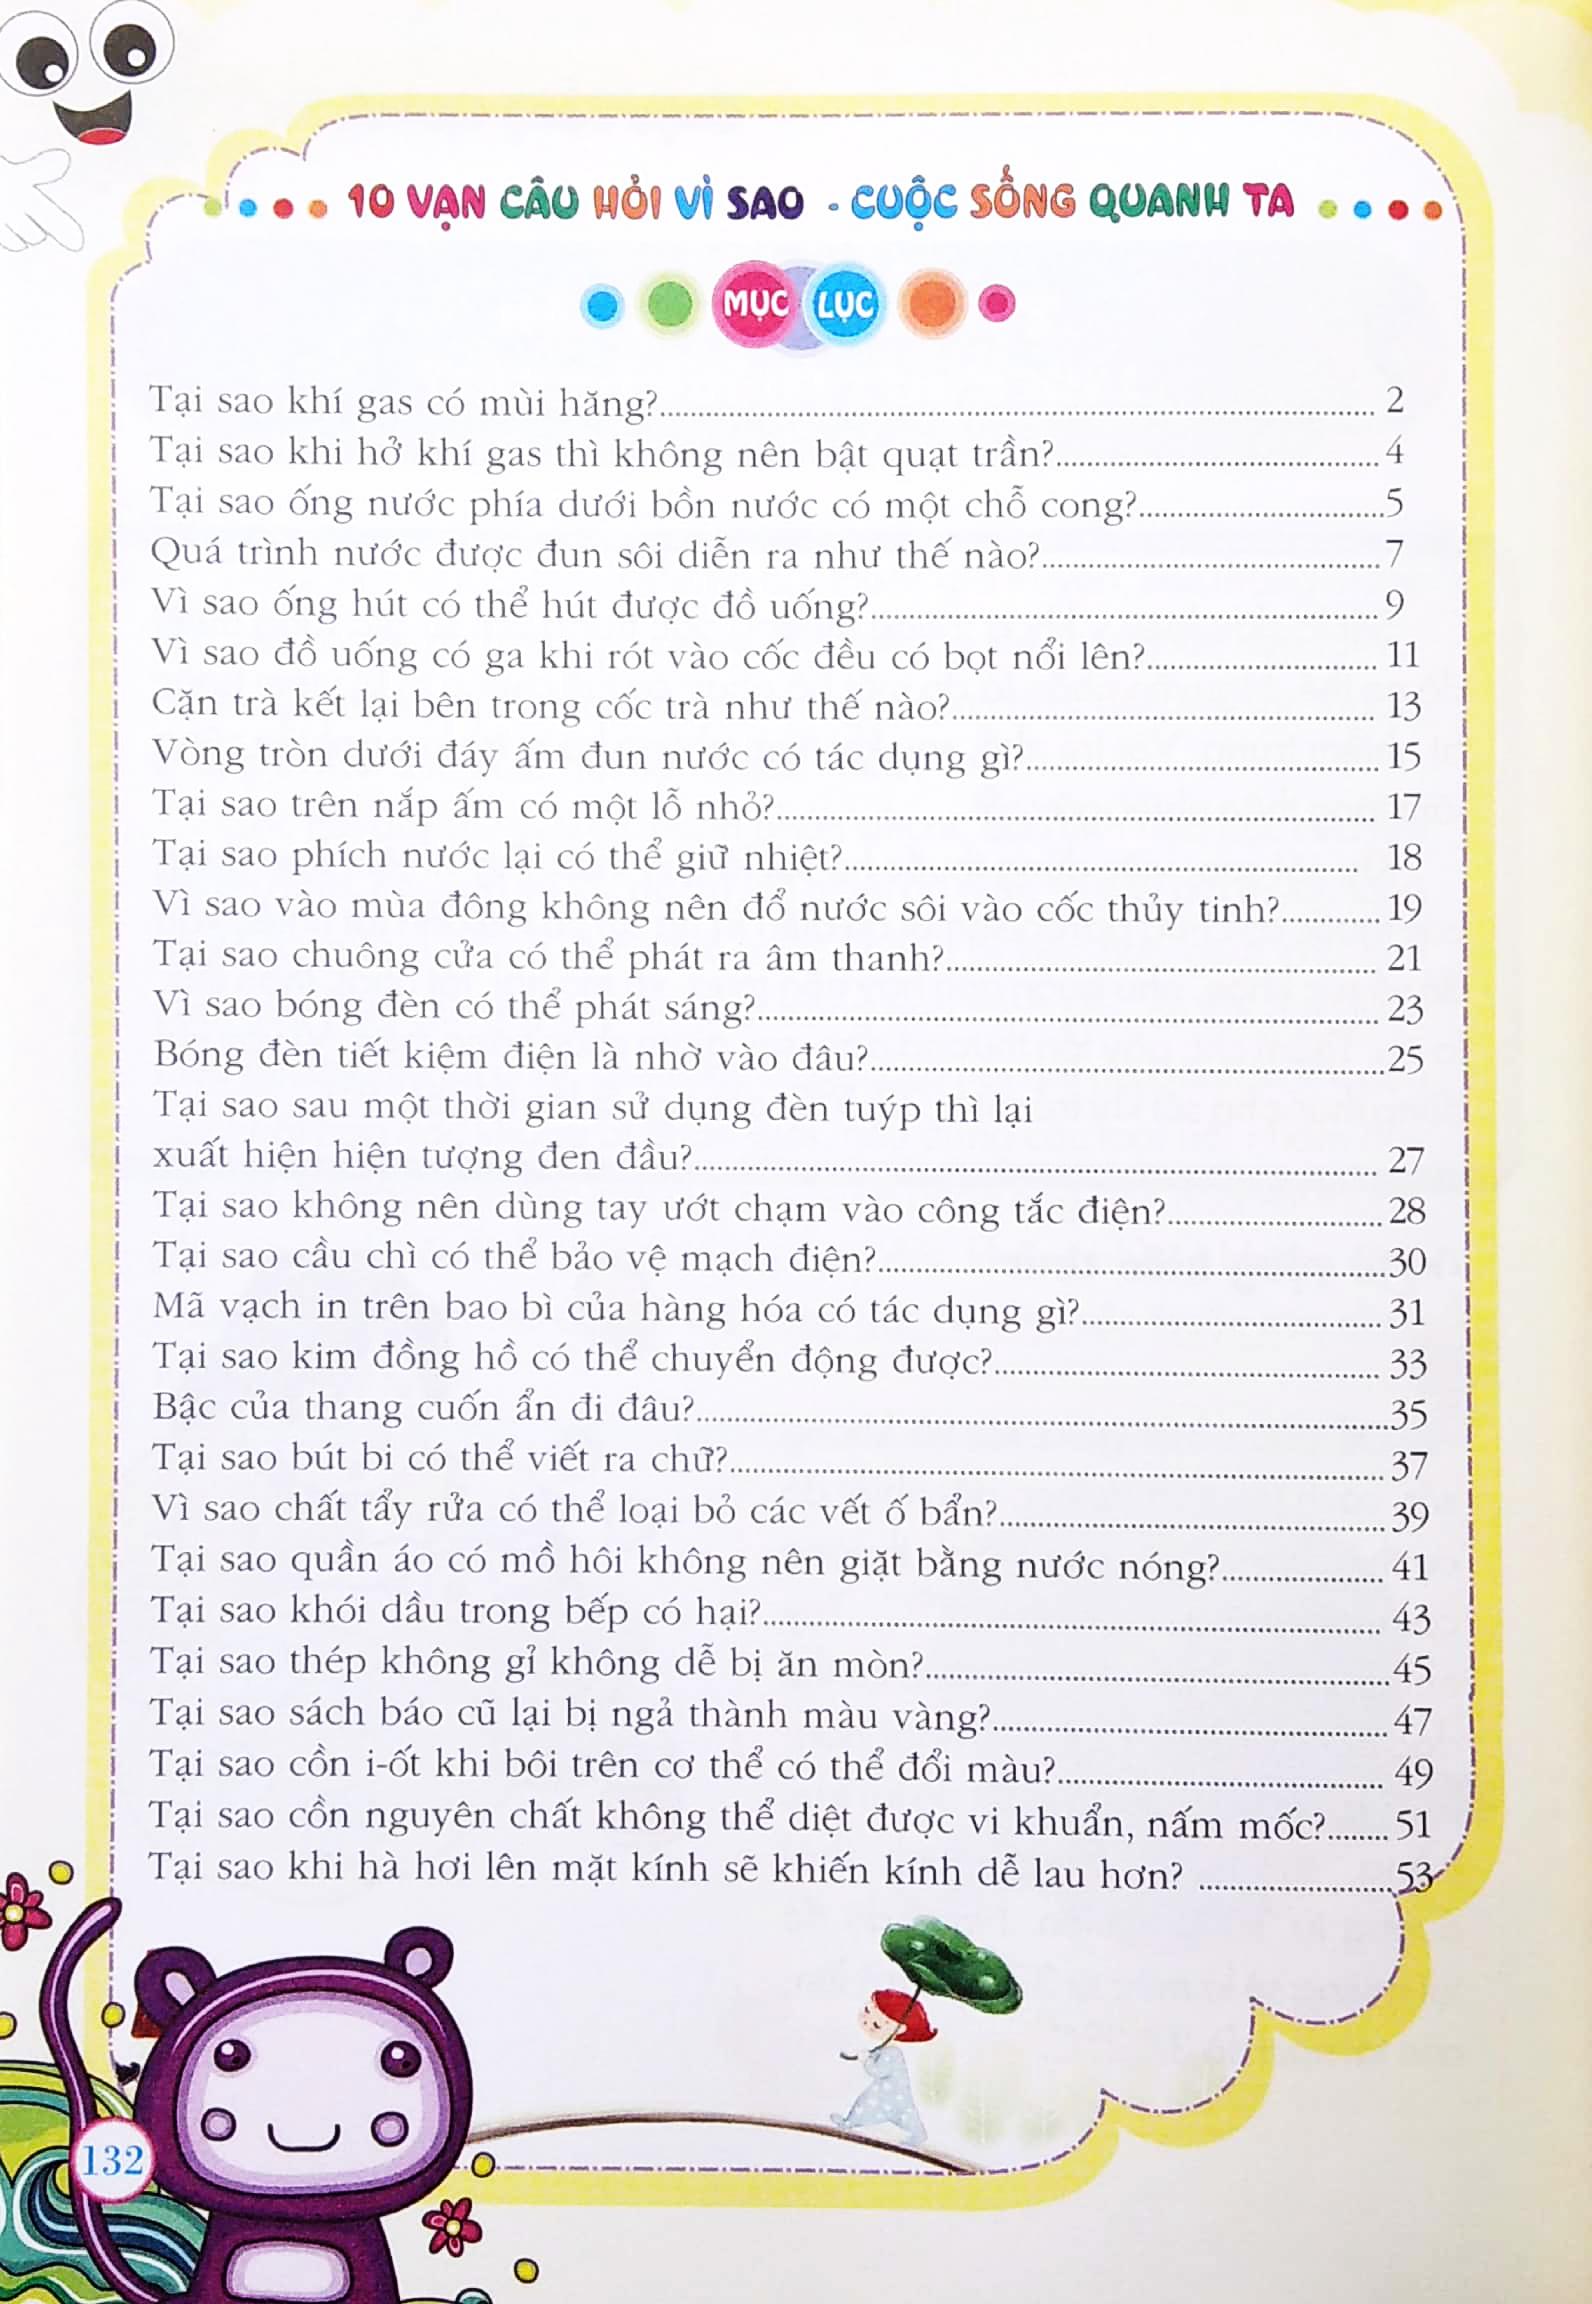 10 VẠN CÂU HỎI VÌ SAO - CUỘC SỐNG QUANH TA
MỤC LỤC
Tại sao khí gas có mùi hăng?........ 2
Tại sao khi hở khí gas thì không nên bật quạt trần?........ 4
Tại sao ống nước phía dưới bồn nước có một chỗ cong?........ 5
Quá trình nước được đun sôi diễn ra như thế nào?........ 7
Vì sao ống hút có thể hút được đồ uống?........ 9
Vì sao đồ uống có ga khi rót vào cốc đều có bọt nổi lên?........ 11
Cặn trà kết lại bên trong cốc trà như thế nào?........ 13
Vòng tròn dưới đáy ấm đun nước có tác dụng gì?........ 15
Tại sao trên nắp ấm có một lỗ nhỏ?........ 17
Tại sao phích nước lại có thể giữ nhiệt?........ 18
Vì sao vào mùa đông không nên đổ nước sôi vào cốc thủy tinh?........ 19
Tại sao chuông cửa có thể phát ra âm thanh?........ 21
Vì sao bóng đèn có thể phát sáng?........ 23
Bóng đèn tiết kiệm điện là nhờ vào đâu?........ 25
Tại sao sau một thời gian sử dụng đèn tuýp thì lại
xuất hiện hiện tượng đen đầu?........ 27
Tại sao không nên dùng tay ướt chạm vào công tắc điện?........ 28
Tại sao cầu chì có thể bảo vệ mạch điện?........ 30
Mã vạch in trên bao bì của hàng hóa có tác dụng gì?........ 31
Tại sao kim đồng hồ có thể chuyển động được?........ 33
Bậc của thang cuốn ẩn đi đâu?........ 35
Tại sao bút bi có thể viết ra chữ?........ 37
Vì sao chất tẩy rửa có thể loại bỏ các vết ố bẩn?........ 39
Tại sao quần áo có mồ hôi không nên giặt bằng nước nóng?........ 41
Tại sao khói dầu trong bếp có hại?........ 43
Tại sao thép không gỉ không dễ bị ăn mòn?........ 45
Tại sao sách báo cũ lại bị ngả thành màu vàng?........ 47
Tại sao cồn i-ốt khi bôi trên cơ thể có thể đổi màu?........ 49
Tại sao cồn nguyên chất không thể diệt được vi khuẩn, nấm mốc?........ 51
Tại sao khi hà hơi lên mặt kính sẽ khiến kính dễ lau hơn? ........ 53
132